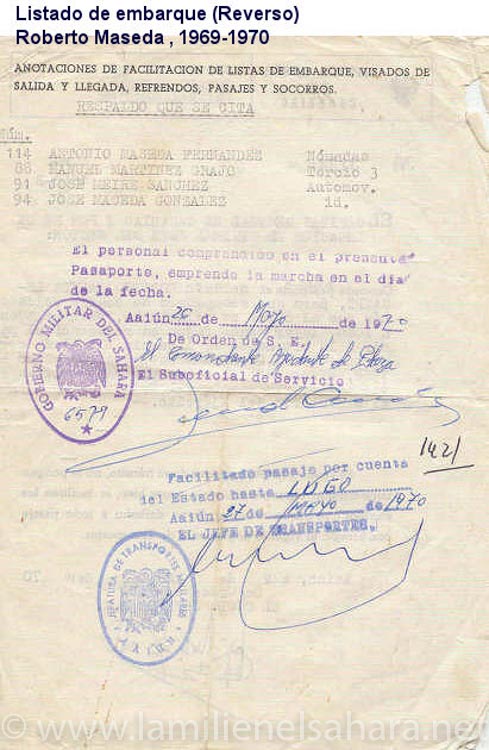 Listado de embarque (Reverso)
Roberto Maseda , 1969-1970
ANOTACIONES DE FACILITACION DE LISTAS DE EMBARQUE, VISADOS DE
SALIDA Y LLEGADA, REFRENDOS, PASAJES Y SOCORROS.
RESPALDO QUE SE CITA
Núm.
114 ANTONIO MASEDA FERNANDEZ Nómadas
88 MANUEL MARTINEZ GRAJO Tercio 3
91 JOSE MEIRE SANCHEZ Automov.
94 JOSE MASEDA GONZALEZ id.
El personal comprendido en el presente
Pasaporte, emprende la marcha en el dia
de la fecha.
Aaiún 26 de Mayo de 1970
De Orden de S. E.
El Comandante Ayudante de Plaza
El Suboficial de Servicio
GOBIERNO MILITAR DEL SAHARA
6579
1421
Facilitado pasaje por cuenta
del Estado hasta LUGO
Aaiún 27 de MAYO de 1970
EL JEFE DE TRANSPORTES,
JEFATURA DE TRANSPORTES MILITARES
© www.lamilienelsahara.net